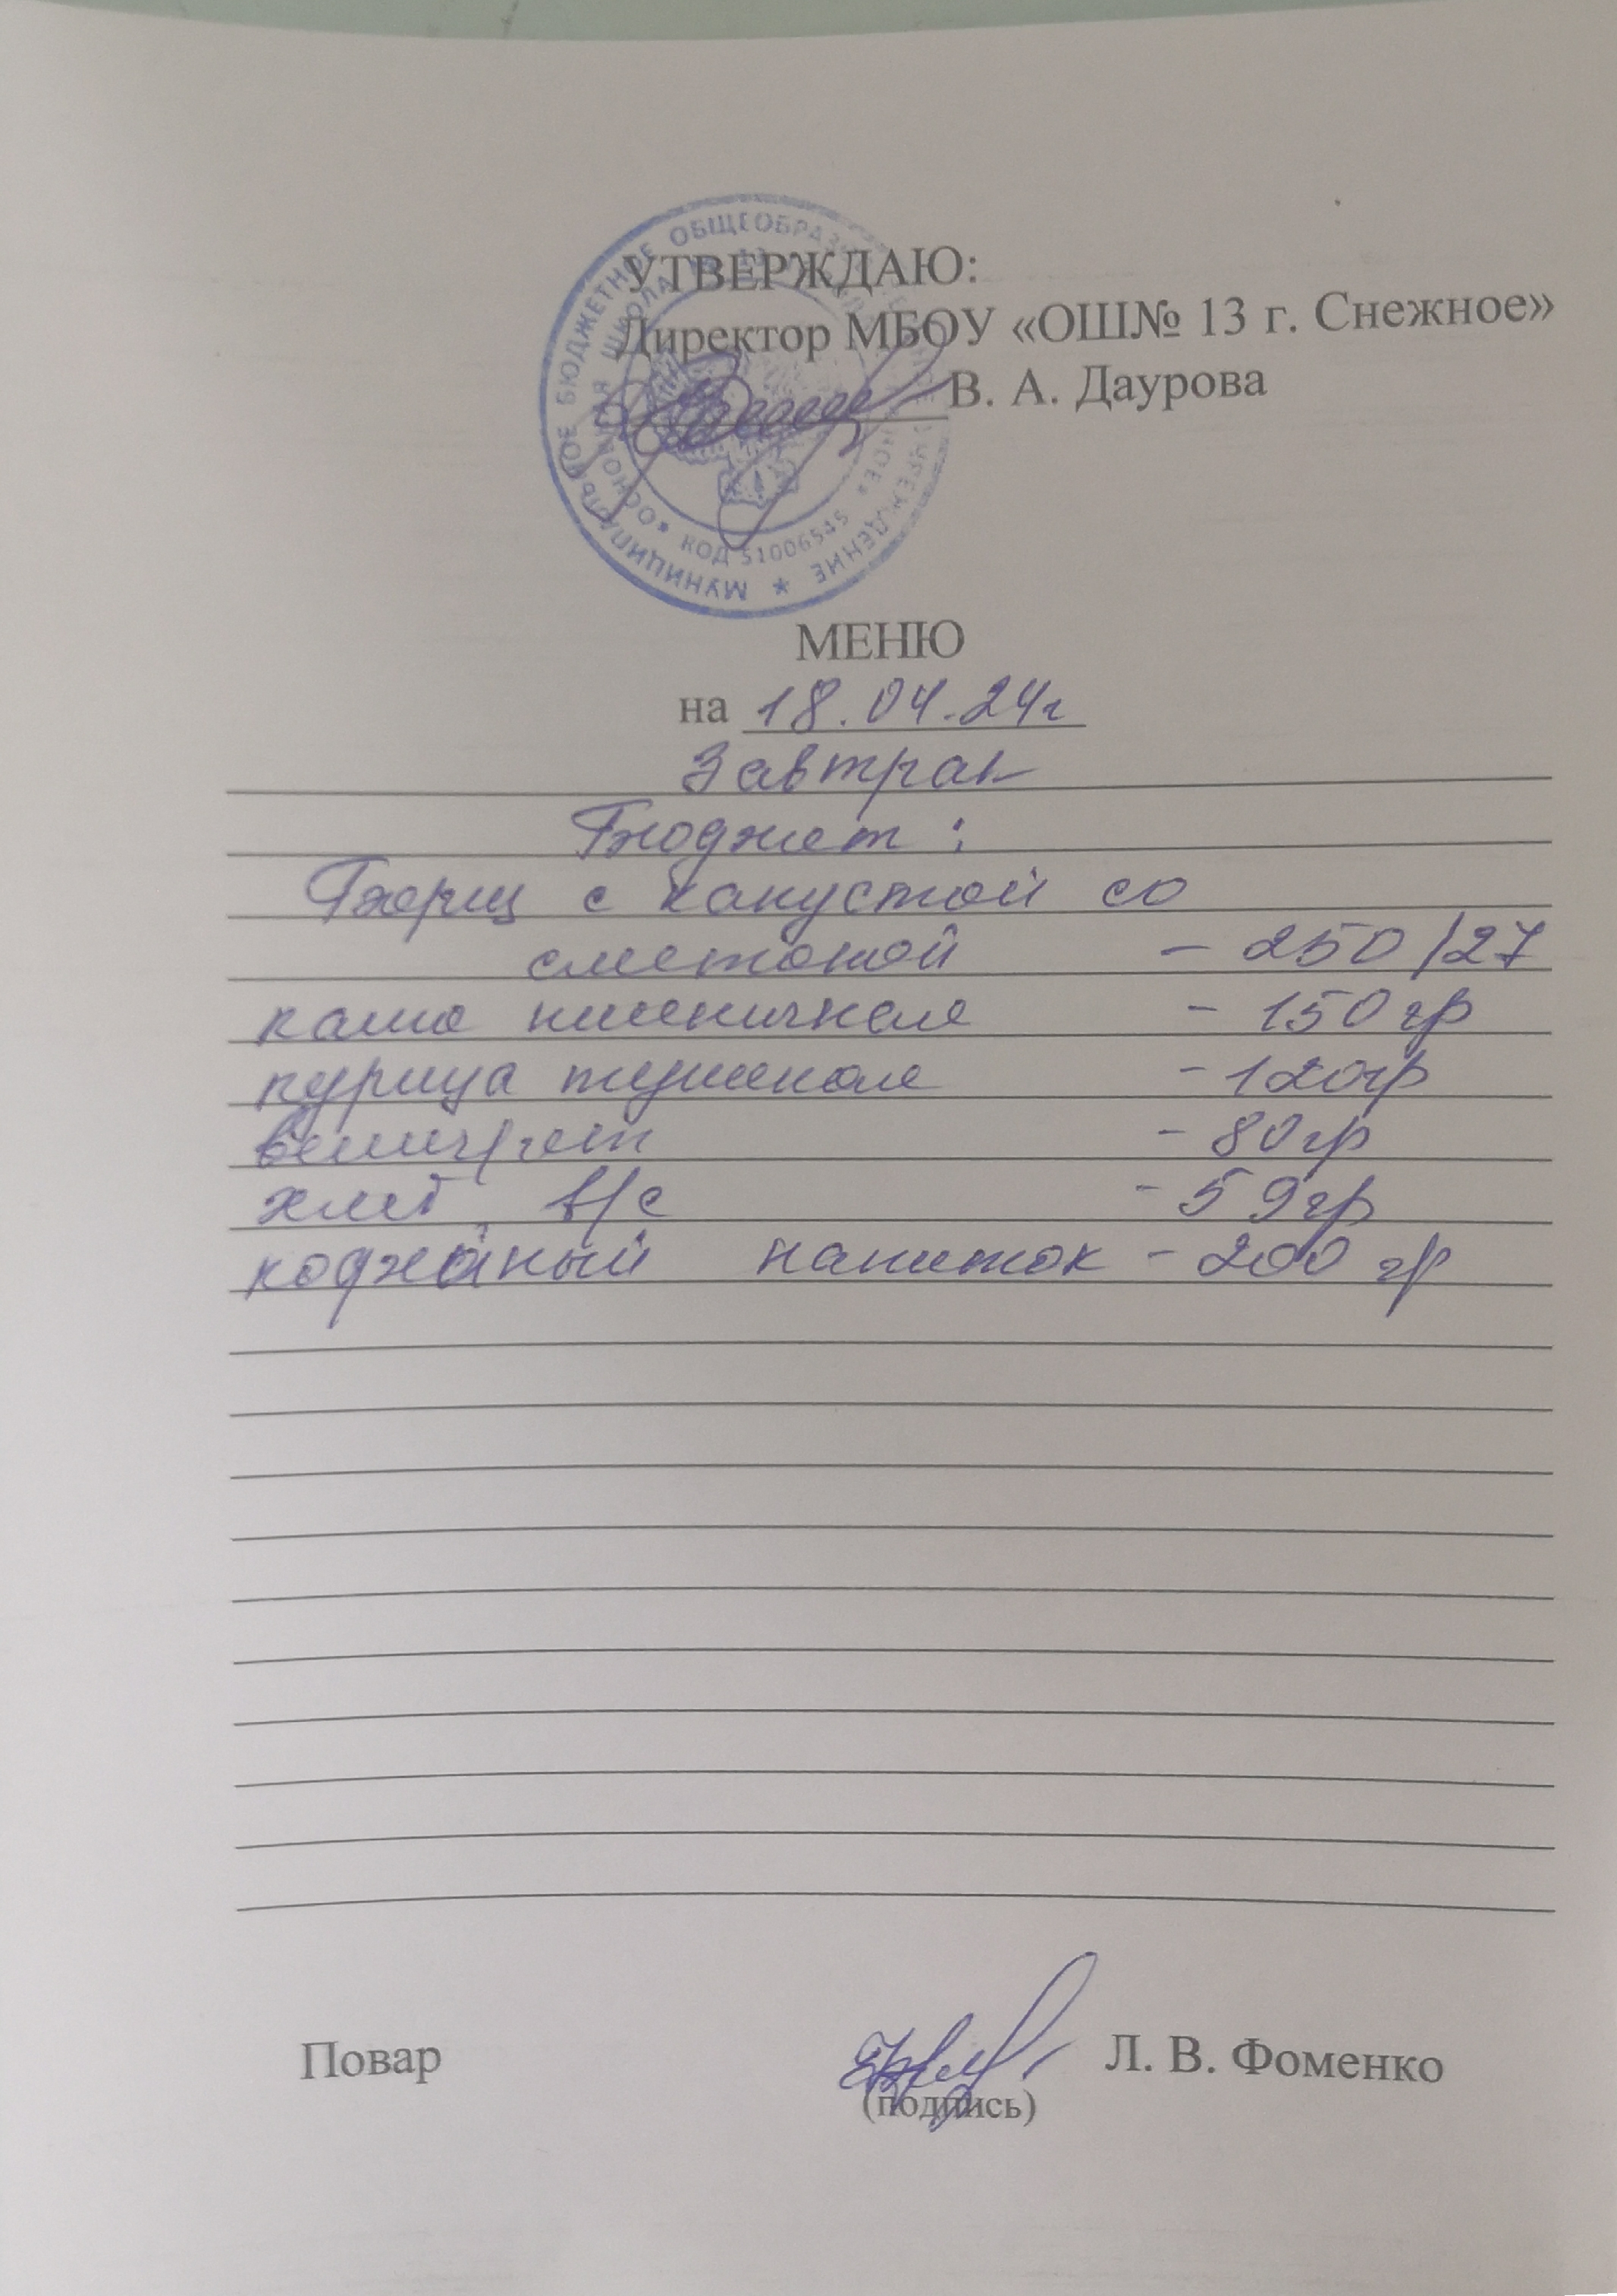 МУНИЦИПАЛЬНОЕ БЮДЖЕТНОЕ ОБЩЕОБРАЗ УЧРЕЖДЕНИЕ *
ШКОЛА
КОД 51006545
УТВЕРЖДАЮ:
Директор МБОУ «ОШ№ 13 г. Снежное»
В. А. Даурова
МЕНЮ
на 18.04.24г
Завтрак
Бюджет :
Борщ с капустой со
сметаной – 250/27
каша пшеничная – 150 гр
курица тушеная – 120гр
винигрет – 80гр
хлеб в/с – 59гр
напиток – 200 гр
Повар Л. В. Фоменко
(подпись)